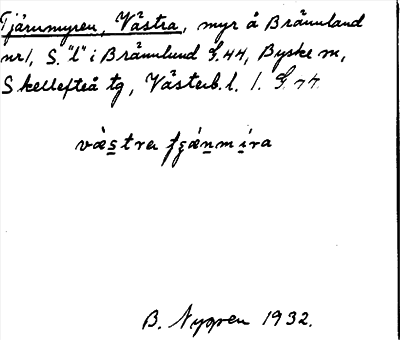 Tjärumyren, Västra, myr å Brännland
nr 1, S. "l" i Brännlund S. 44, Byske sn,
Skellefteå tg, Västerb. l. 1. S. 77.
västra
B. Nygren 1932.